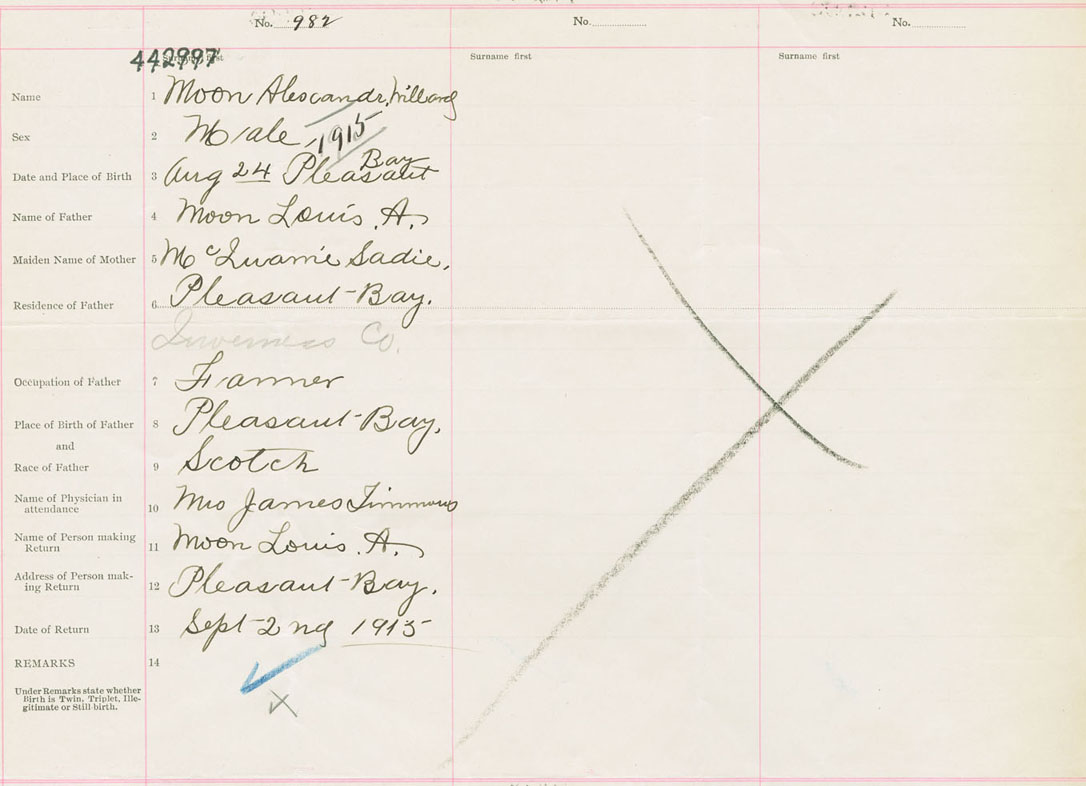 No. 982 No. No.
442997
Surname first Surname first Surname first
Name 1 Moon Alexandr. Willard
Sex 2 Male 1915
Bay
Date and Place of Birth 3 Aug 24 Pleasant
Name of Father 4 Moon Louis. A.
Maiden Name of Mother 5 Sadie.
Residence of Father 6 Pleasant-Bay.
Inverness Co.
Occupation of Father 7 Farmer
Place of Birth of Father 8 Pleasant-Bay.
and
Race of Father 9 Scotch
Name of Physician in
attendance 10 Mrs James Timmons
Name of Person making
Return 11 Moon Louis. A.
Address of Person mak-
ing Return 12 Pleasant-Bay.
Date of Return 13 Sept 2nd 1915
REMARKS 14
Under Remarks state whether
Birth is Twin, Triplet, Ille-
gitimate or Still-birth.